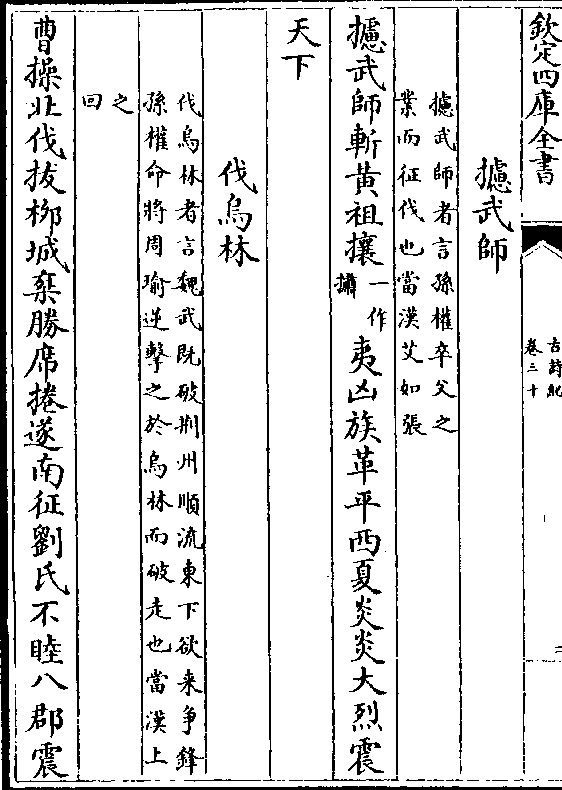 欽定四庫全書
古詩紀
卷三十
二
攄武師
攄武師者言孫權卒父之
業而征伐也當漢艾如張
攄武師斬黄祖攘一作
㩦夷凶族革平西夏炎炎大烈震
天下
伐烏林
伐烏林者言魏武既破荆州順流東下欲来争鋒
孫權命將周瑜逆擊之於烏林而破走也當漢上
之
回
曹操北伐拔柳城乗勝席捲遂南征劉氏不睦八郡震